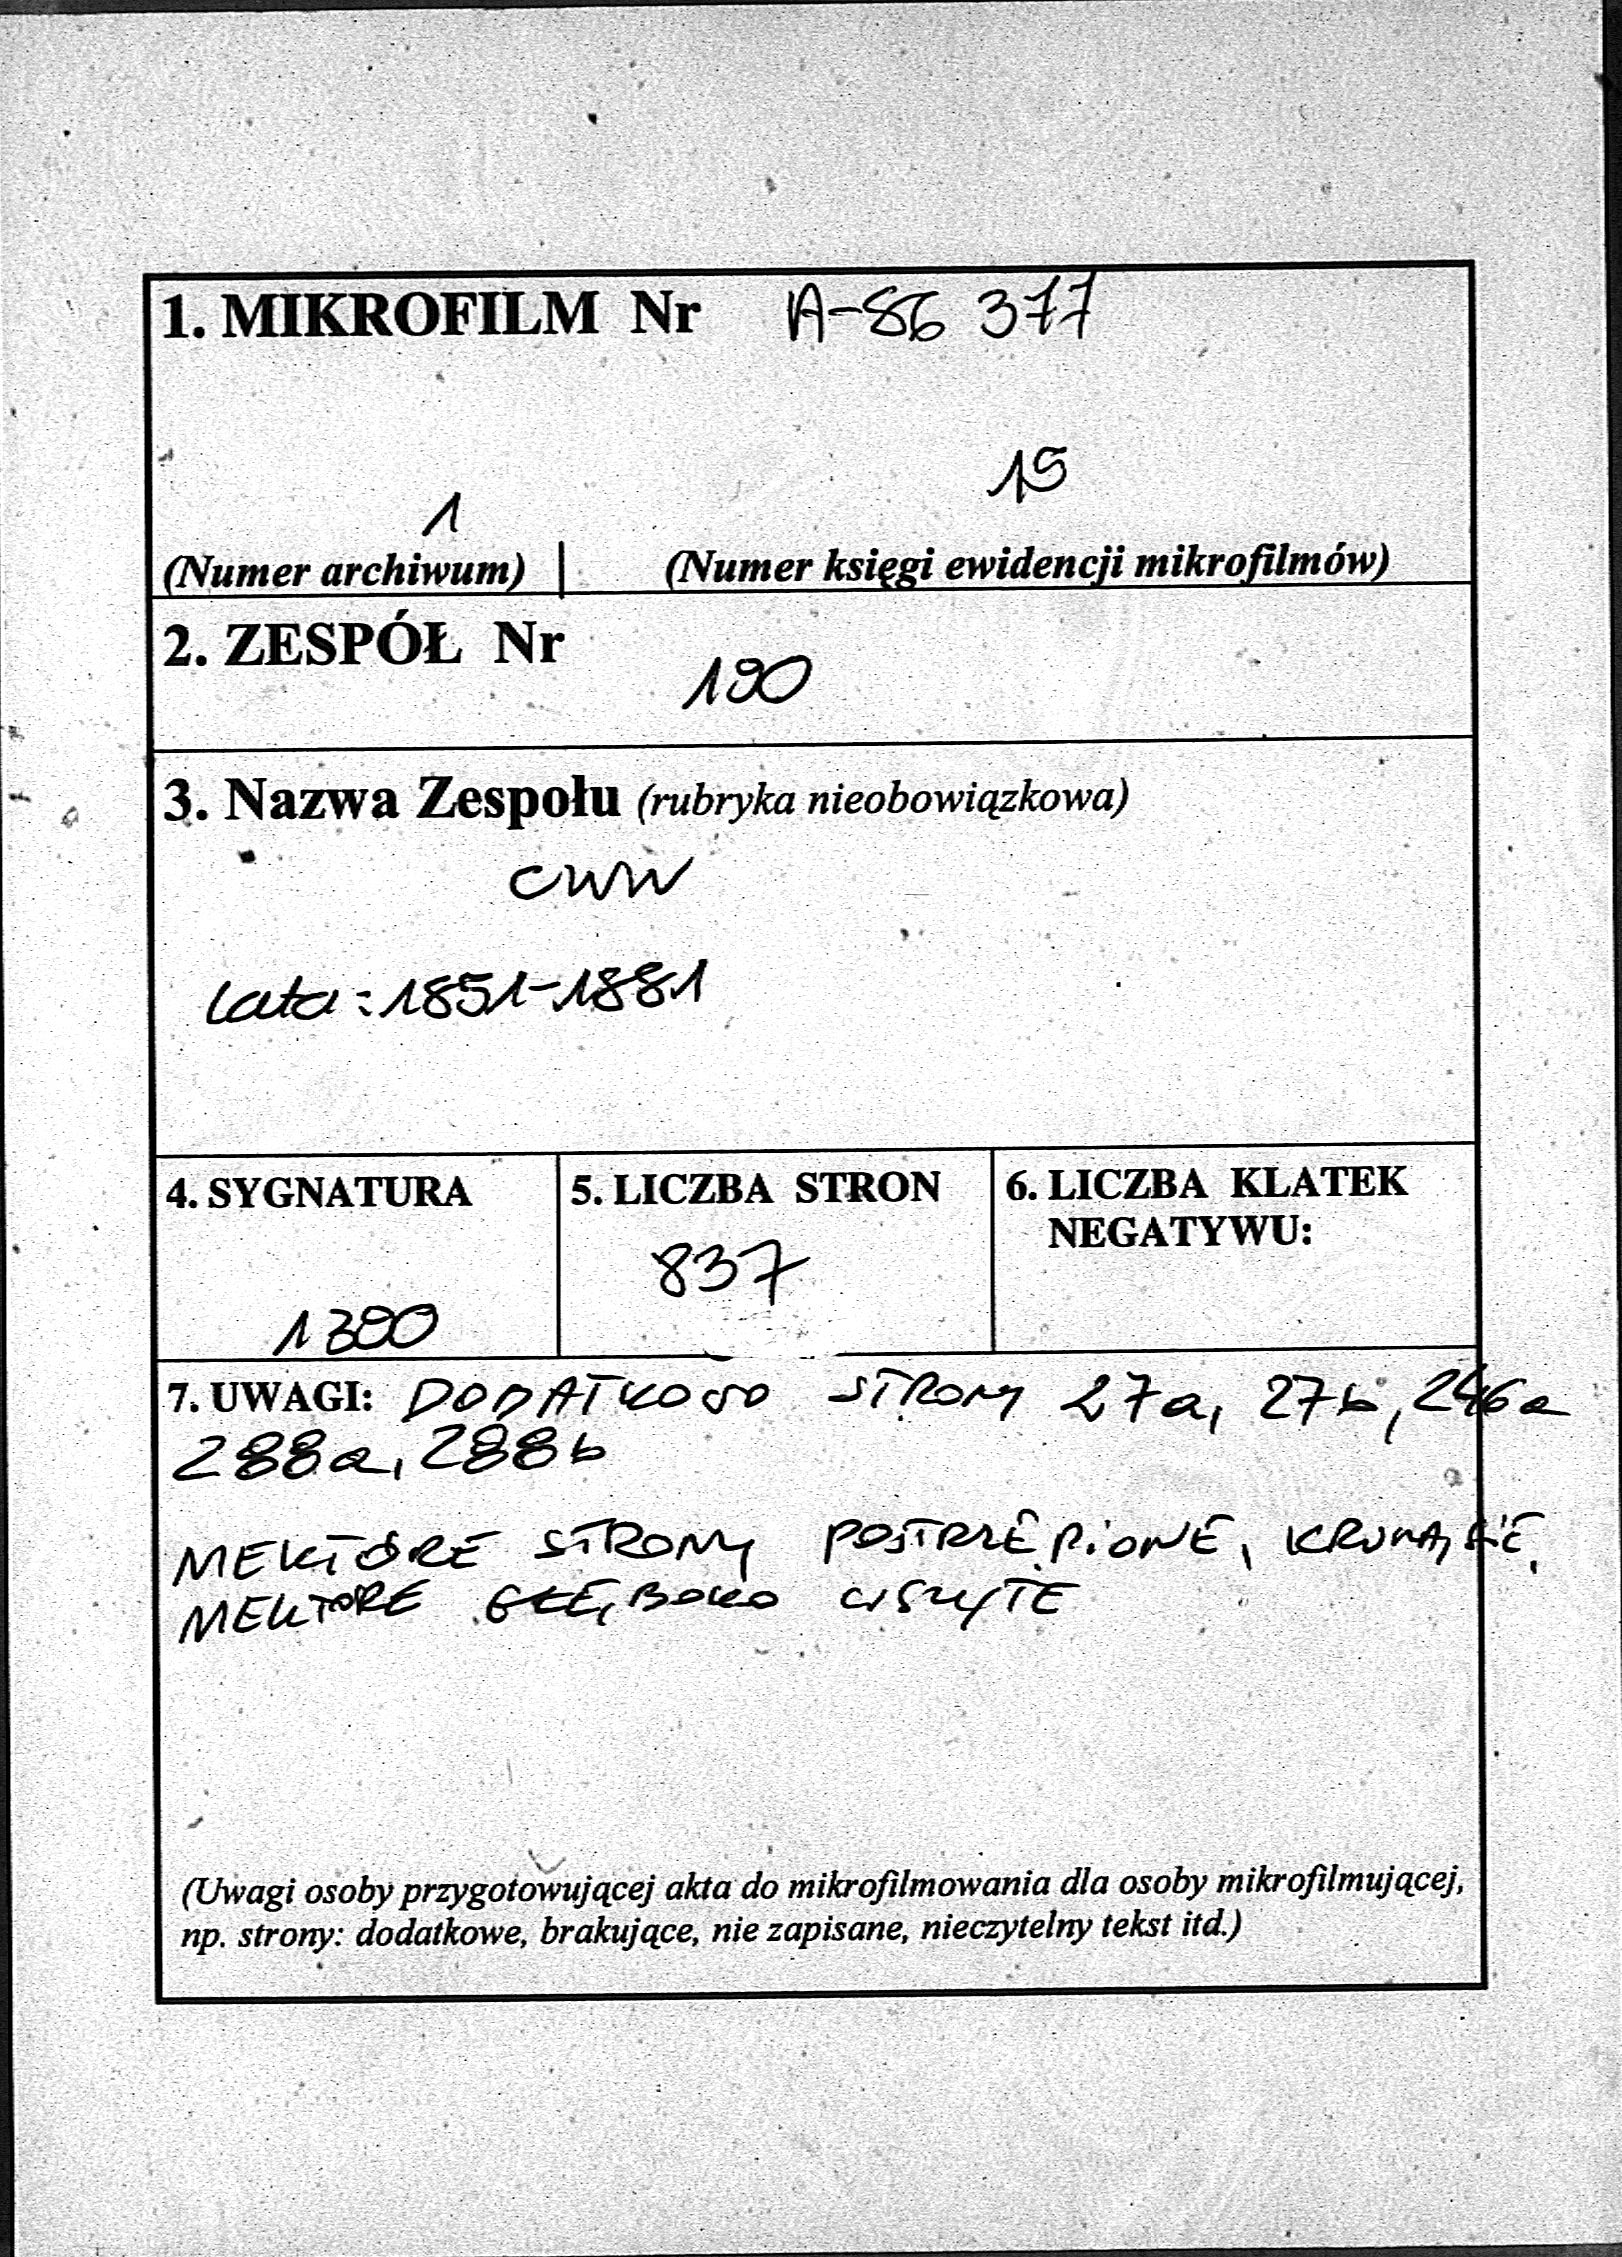 1. MIKROFILM Nr A-86 377
15
1
(Numer archiwum) | (Numer księgi ewidencji mikrofilmów)
2. ZESPÓŁ Nr
190
3. Nazwa Zespołu (rubryka nieobowiązkowa)
CWW
lata: 1851-1881
4. SYGNATURA 5. LICZBA STRON 6. LICZBA KLATEK
NEGATYWU:
837
1390
7. UWAGI: DODATKOWO STRONY 27a, 27b, 246a
288a, 288b
NIEKTÓRE STRONY POSTRZĘPIONE, KRUSZĄ SIĘ,
NIEKTÓRE GŁĘBOKO WSZYTE
(Uwagi osoby przygotowującej akta do mikrofilmowania dla osoby mikrofilmującej,
np. strony: dodatkowe, brakujące, nie zapisane, nieczytelny tekst itd.)